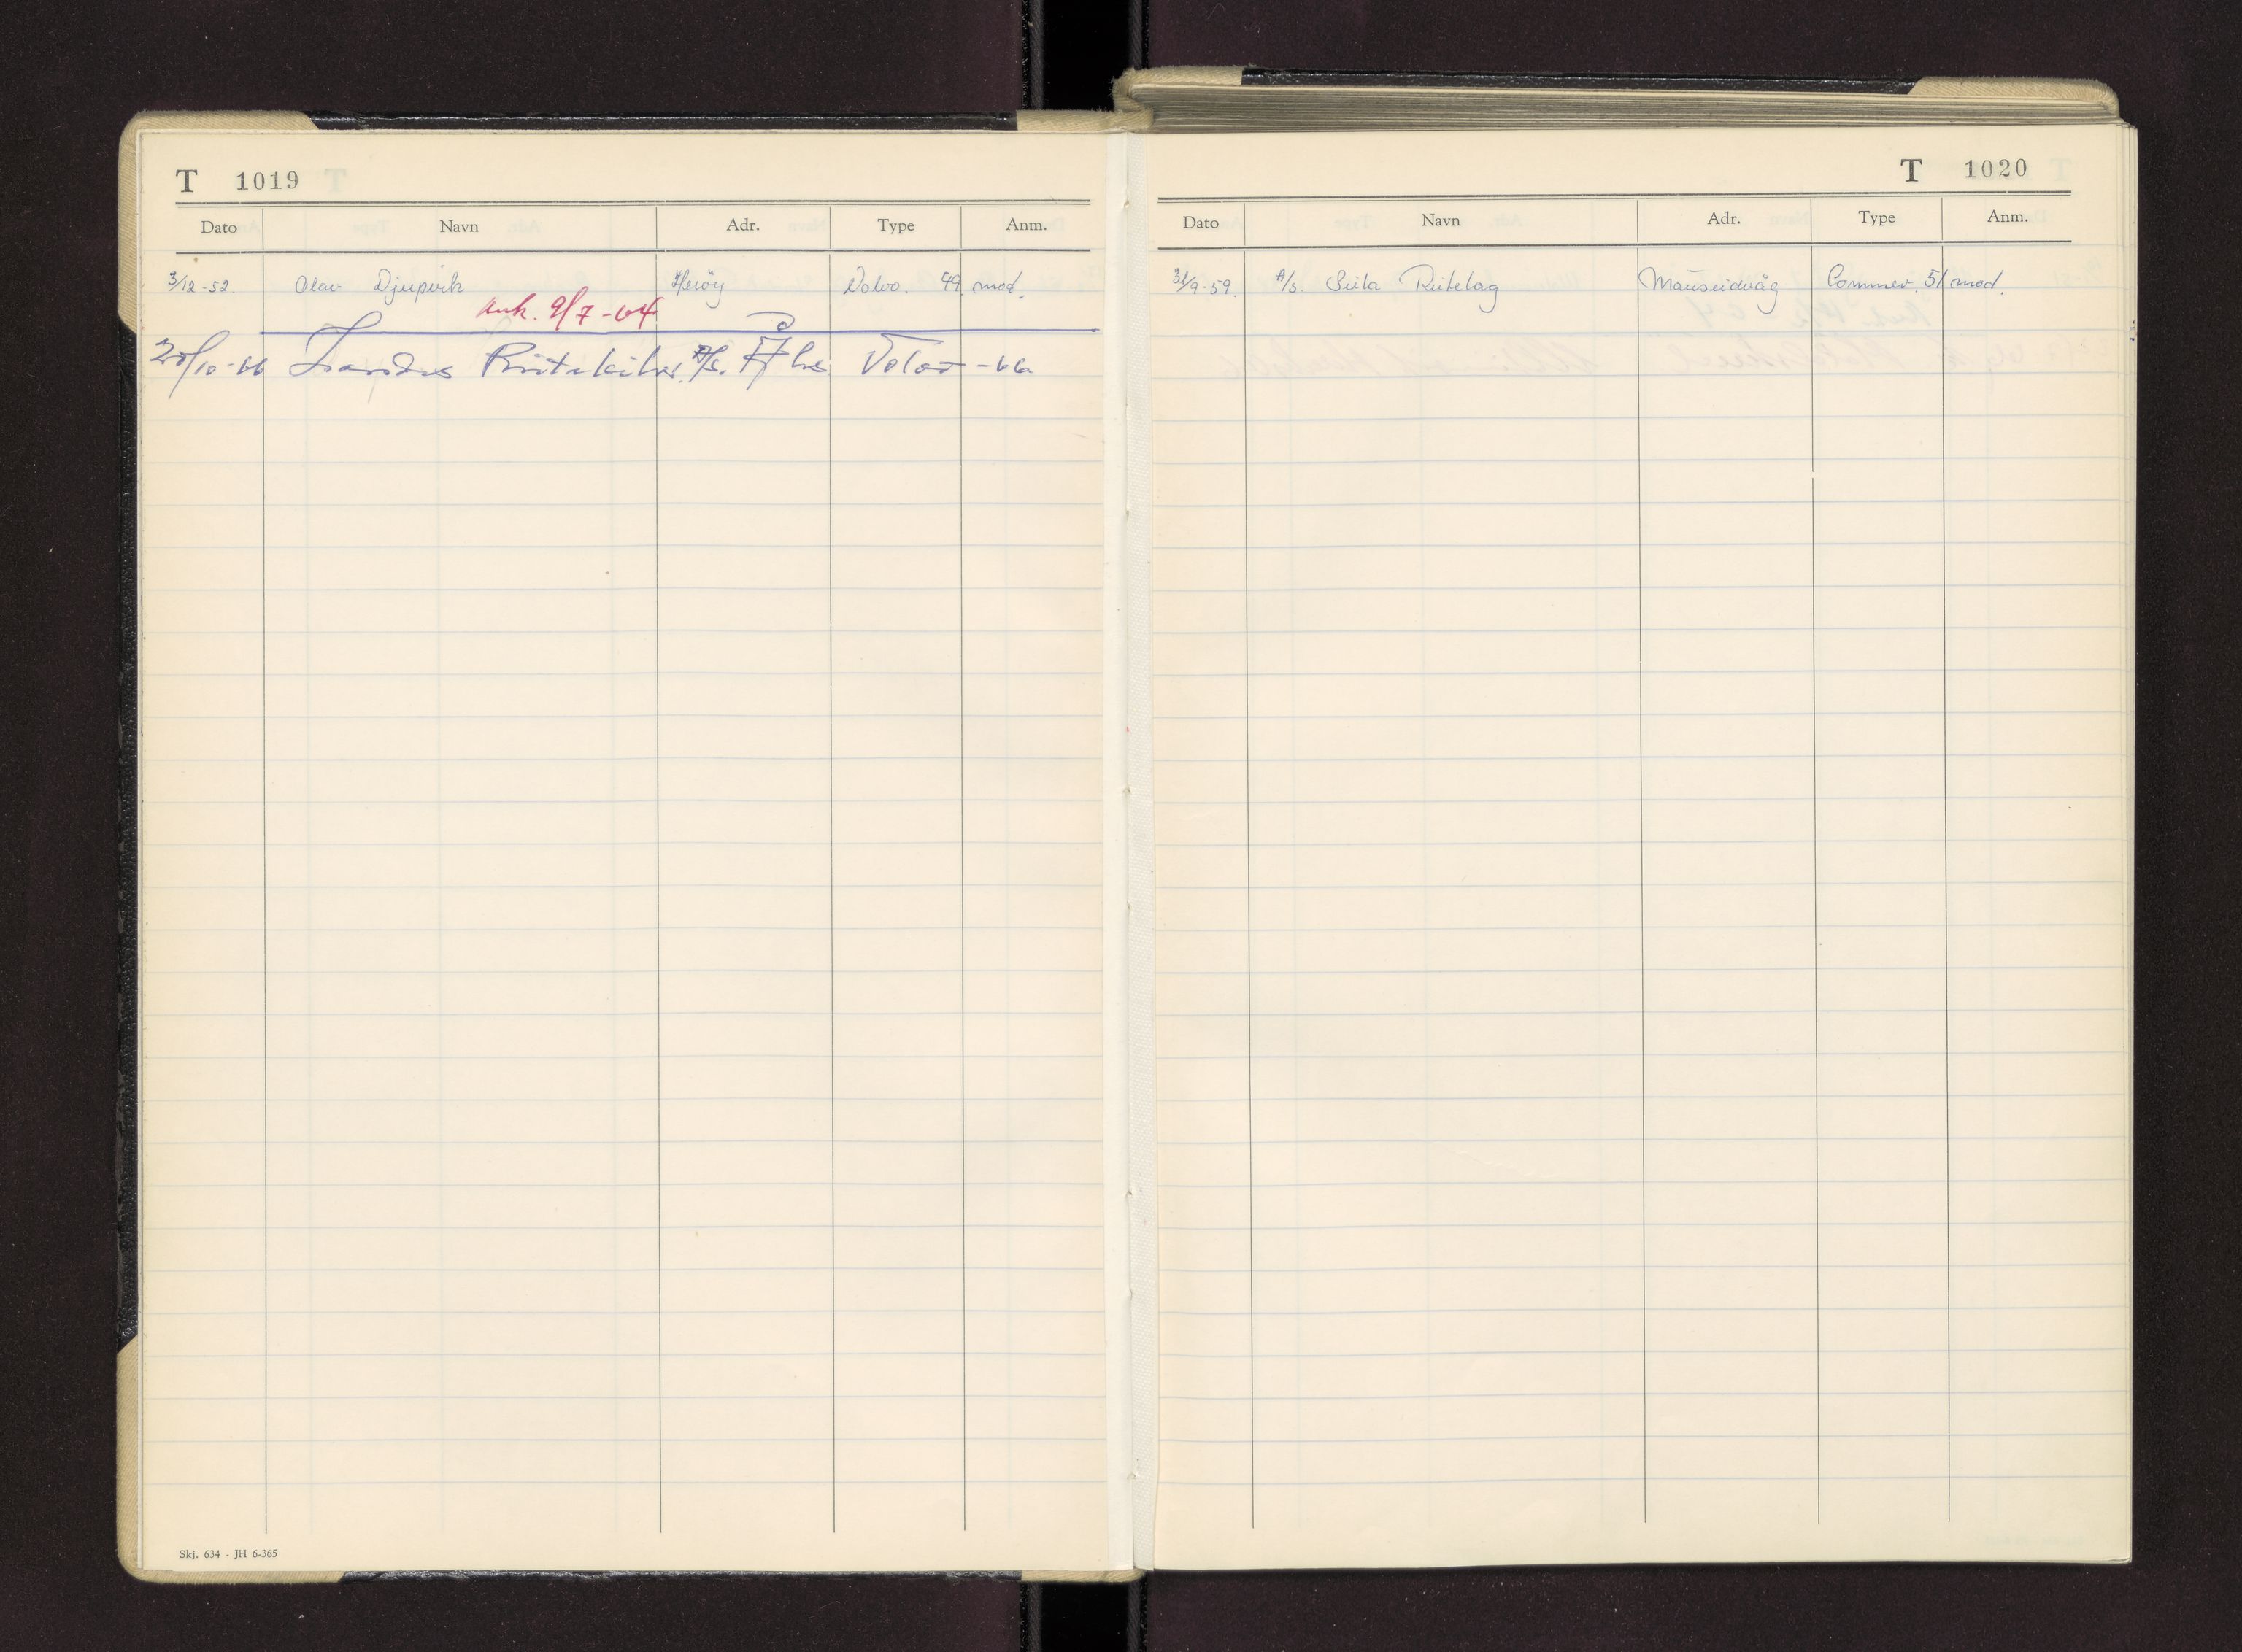 T 1019
Dato Navn Adr. Type Anm.
3/12-52. Olav Djupvik Herøy Volvo. 49. mod.
Avh. 9/7-64
20/10-66 Rutebiler A/S. Volvo -66
Skj. 634 - JH 6-365
T 1020
Dato Navn Adr. Type Anm.
/9-59. A/S. Sula Rutelag Mauseidvåg Commer. 51 mod.